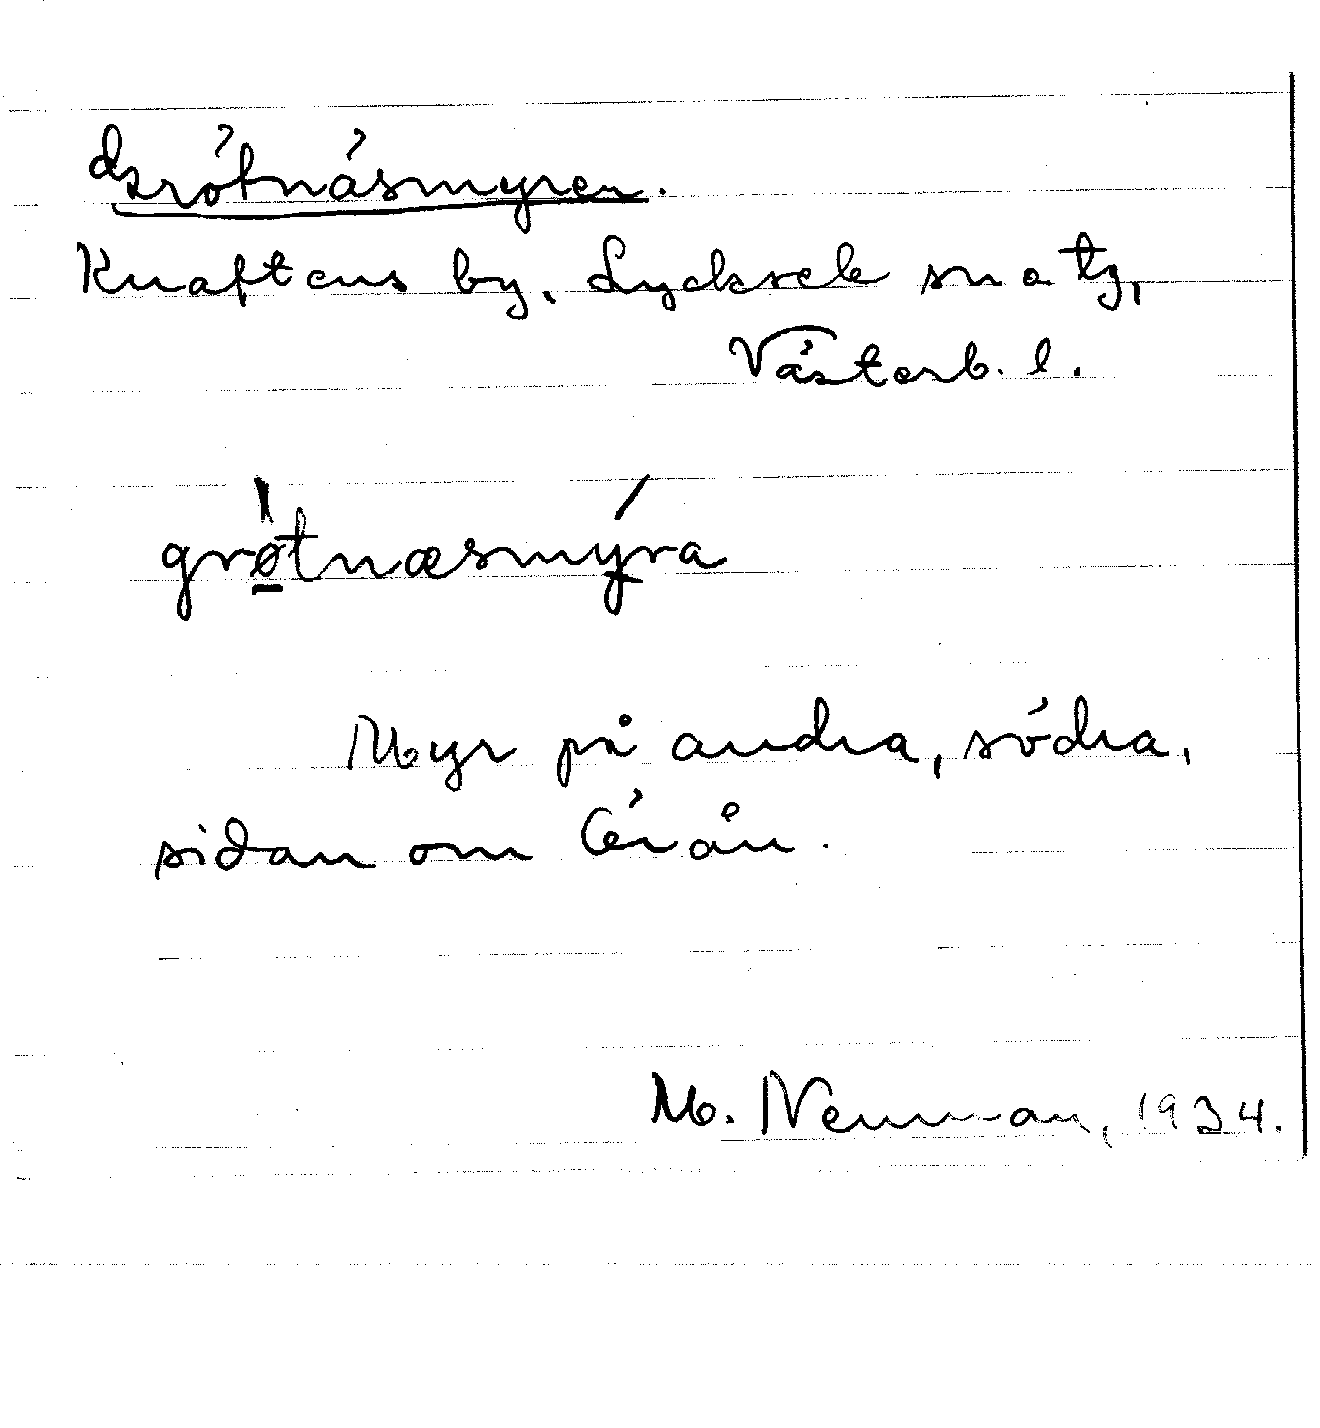 Grötnäsmyren.
Knaftens by, Lycksele sn o tg,
Västerb. l.
grøtnæsmyra
Myr på andra, södra,
sidan om Örån.
M. Neuman, 1934.